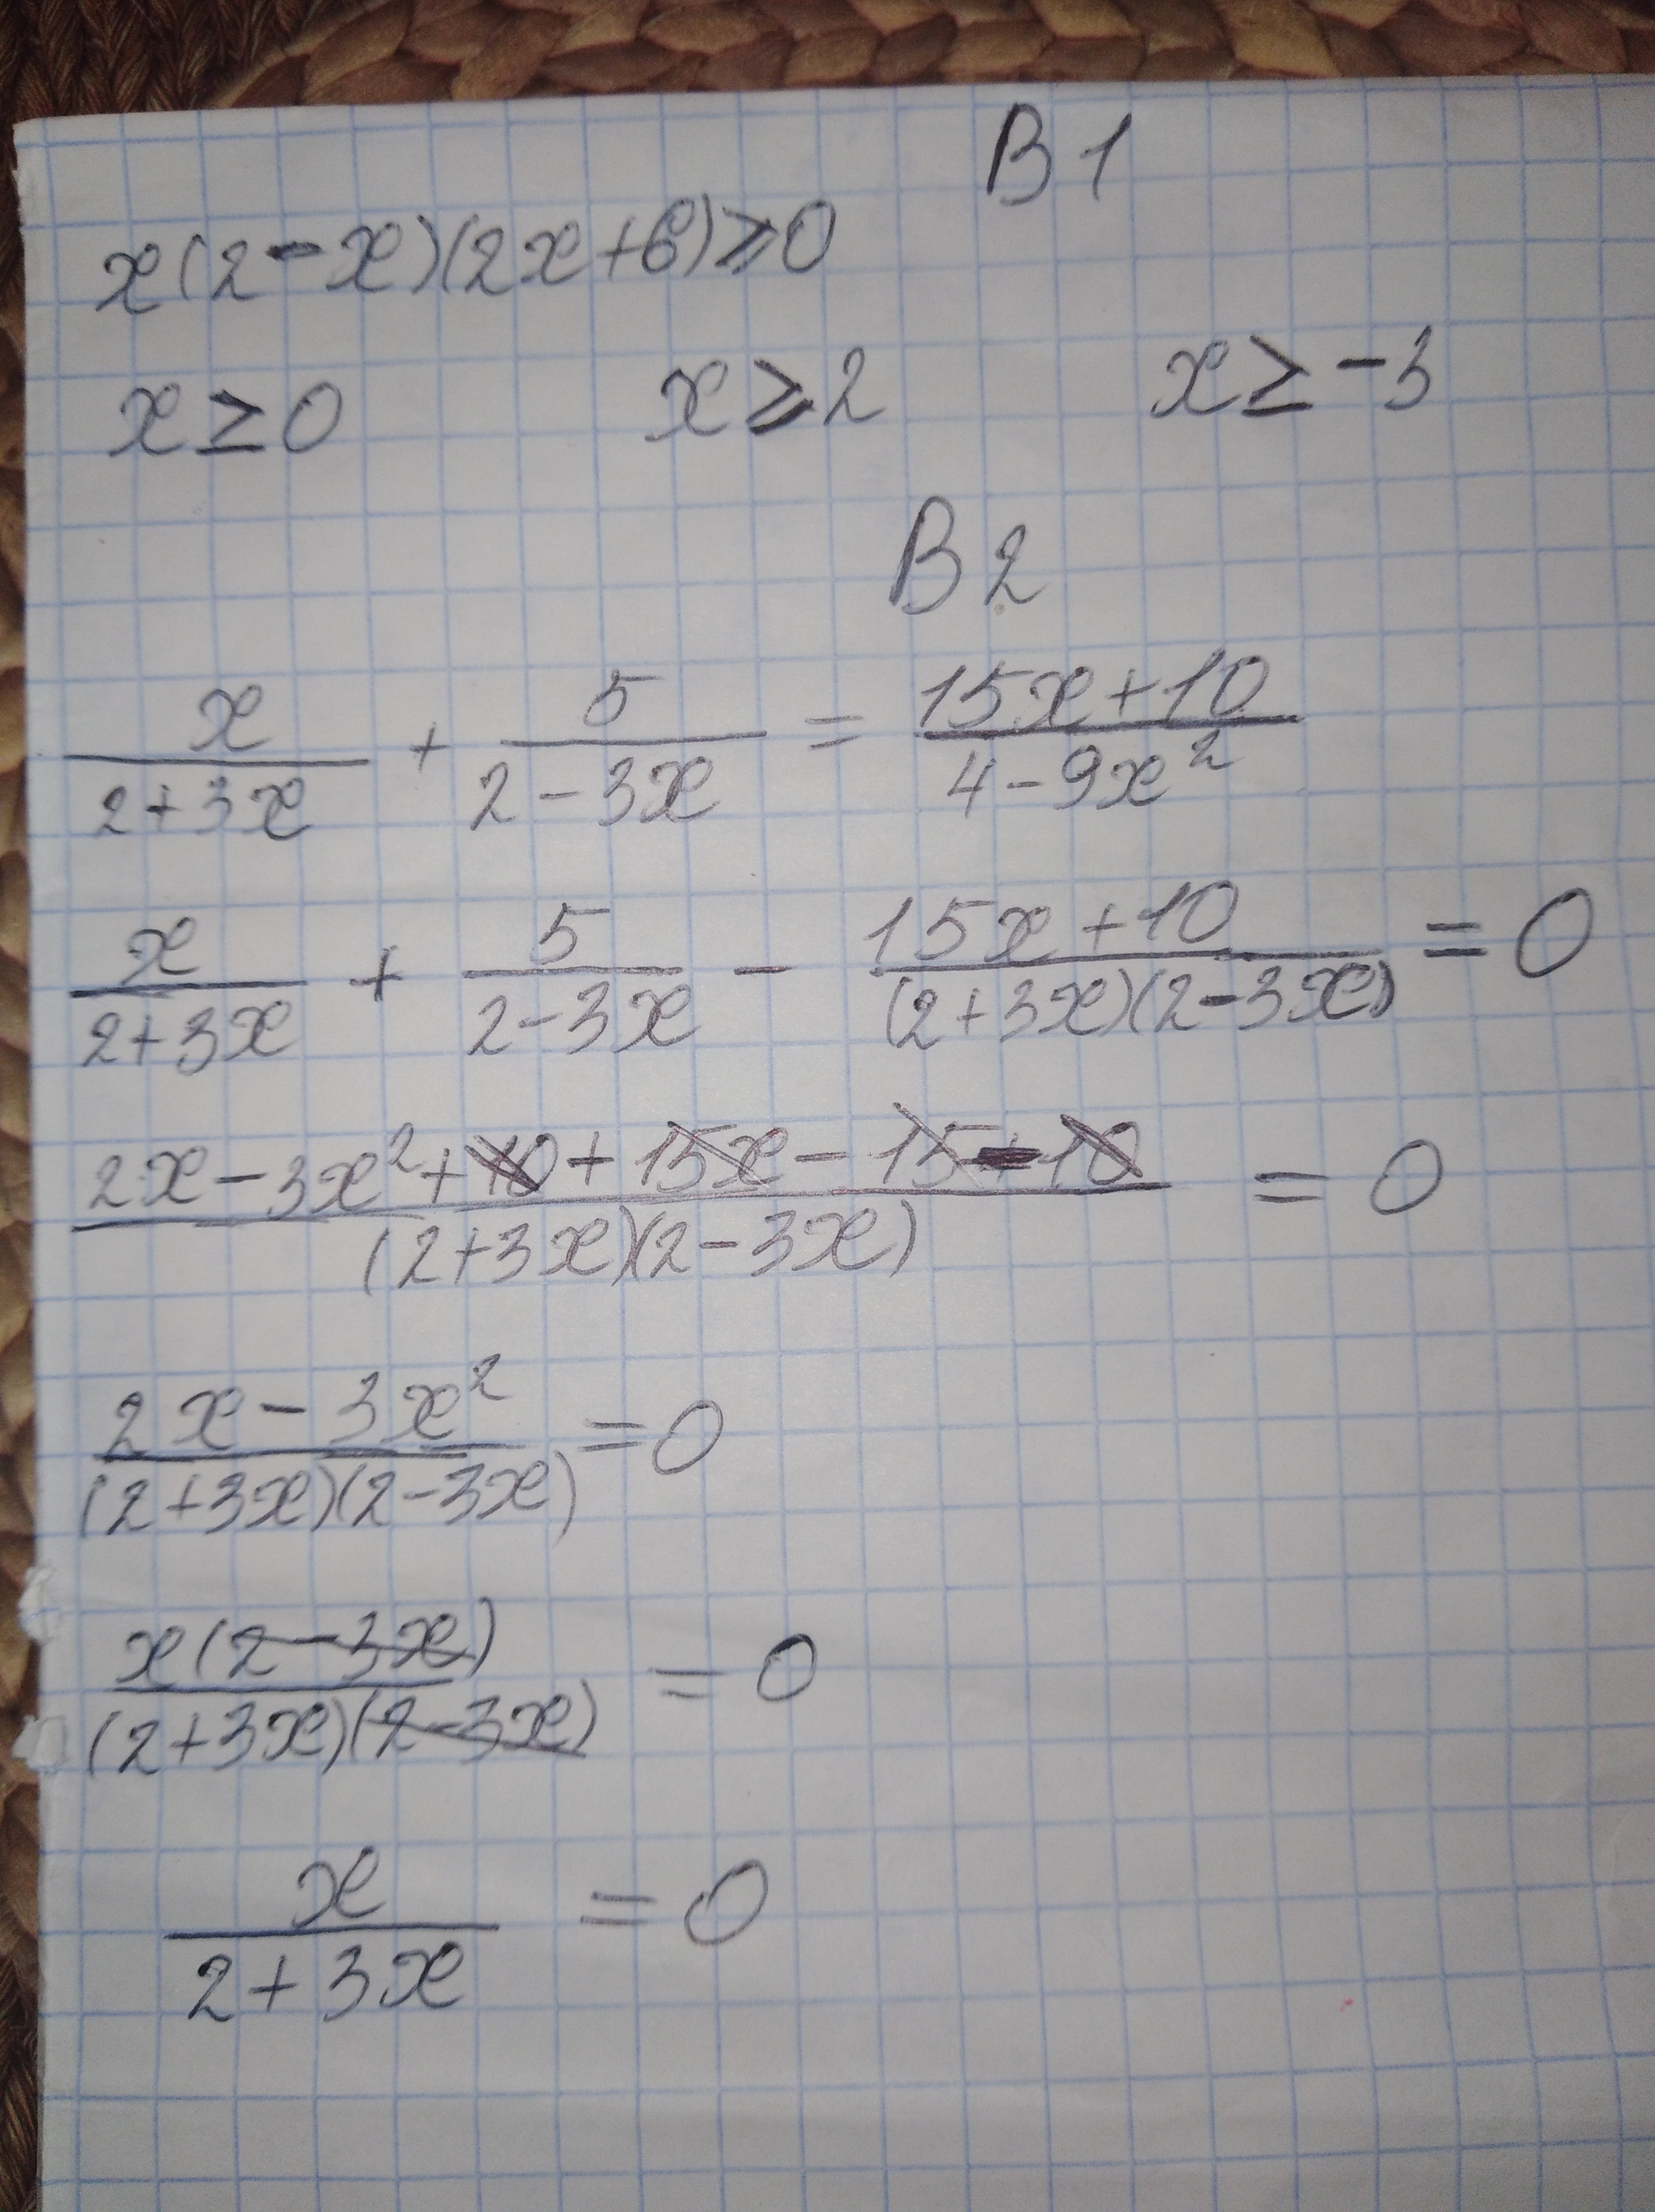 В1
x(2-x)(2x+6)≥0
x≥0 x≥2 x≥-3
В2
x/(2+3x) + 5/(2-3x) = (15x+10)/(4-9x²)
x/(2+3x) + 5/(2-3x) - (15x+10)/((2+3x)(2-3x)) = 0
(2x-3x²+10+15x-15-10)/((2+3x)(2-3x)) = 0
(2x-3x²)/((2+3x)(2-3x)) = 0
x(2-3x)/((2+3x)(2-3x)) = 0
x/(2+3x) = 0